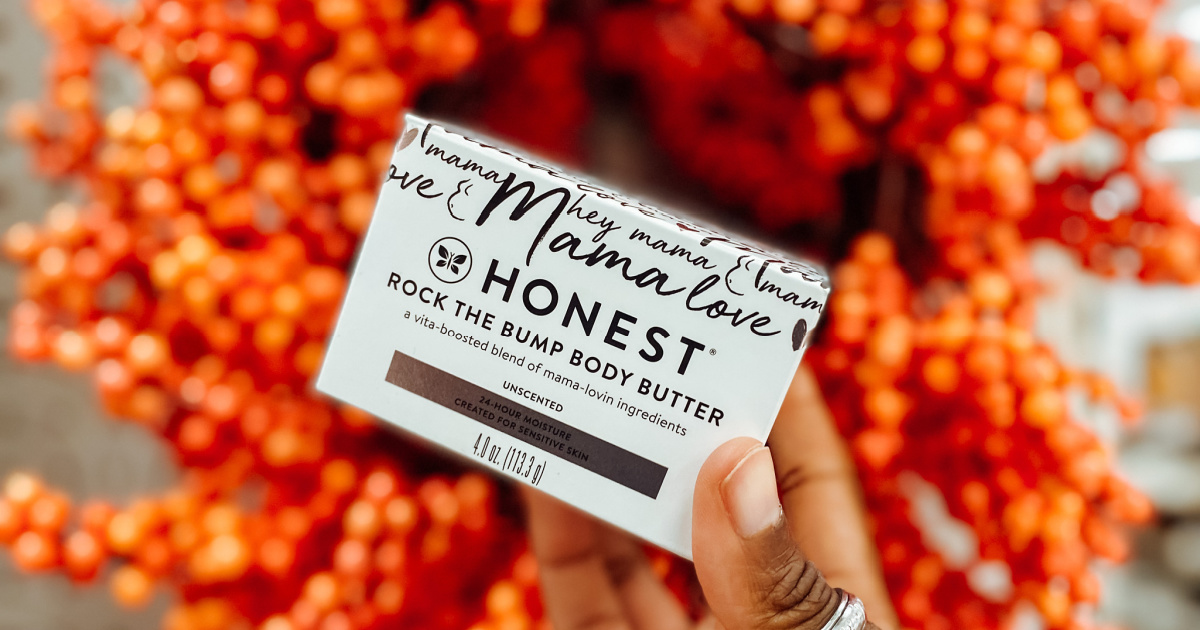 mama
ove & Mhey mama & mam
Mama love
HONEST®
ROCK THE BUMP BODY BUTTER
a vita-boosted blend of mama-lovin ingredients
UNSCENTED
24-HOUR MOISTURE
CREATED FOR SENSITIVE SKIN
4.0 oz. (113.3 g)